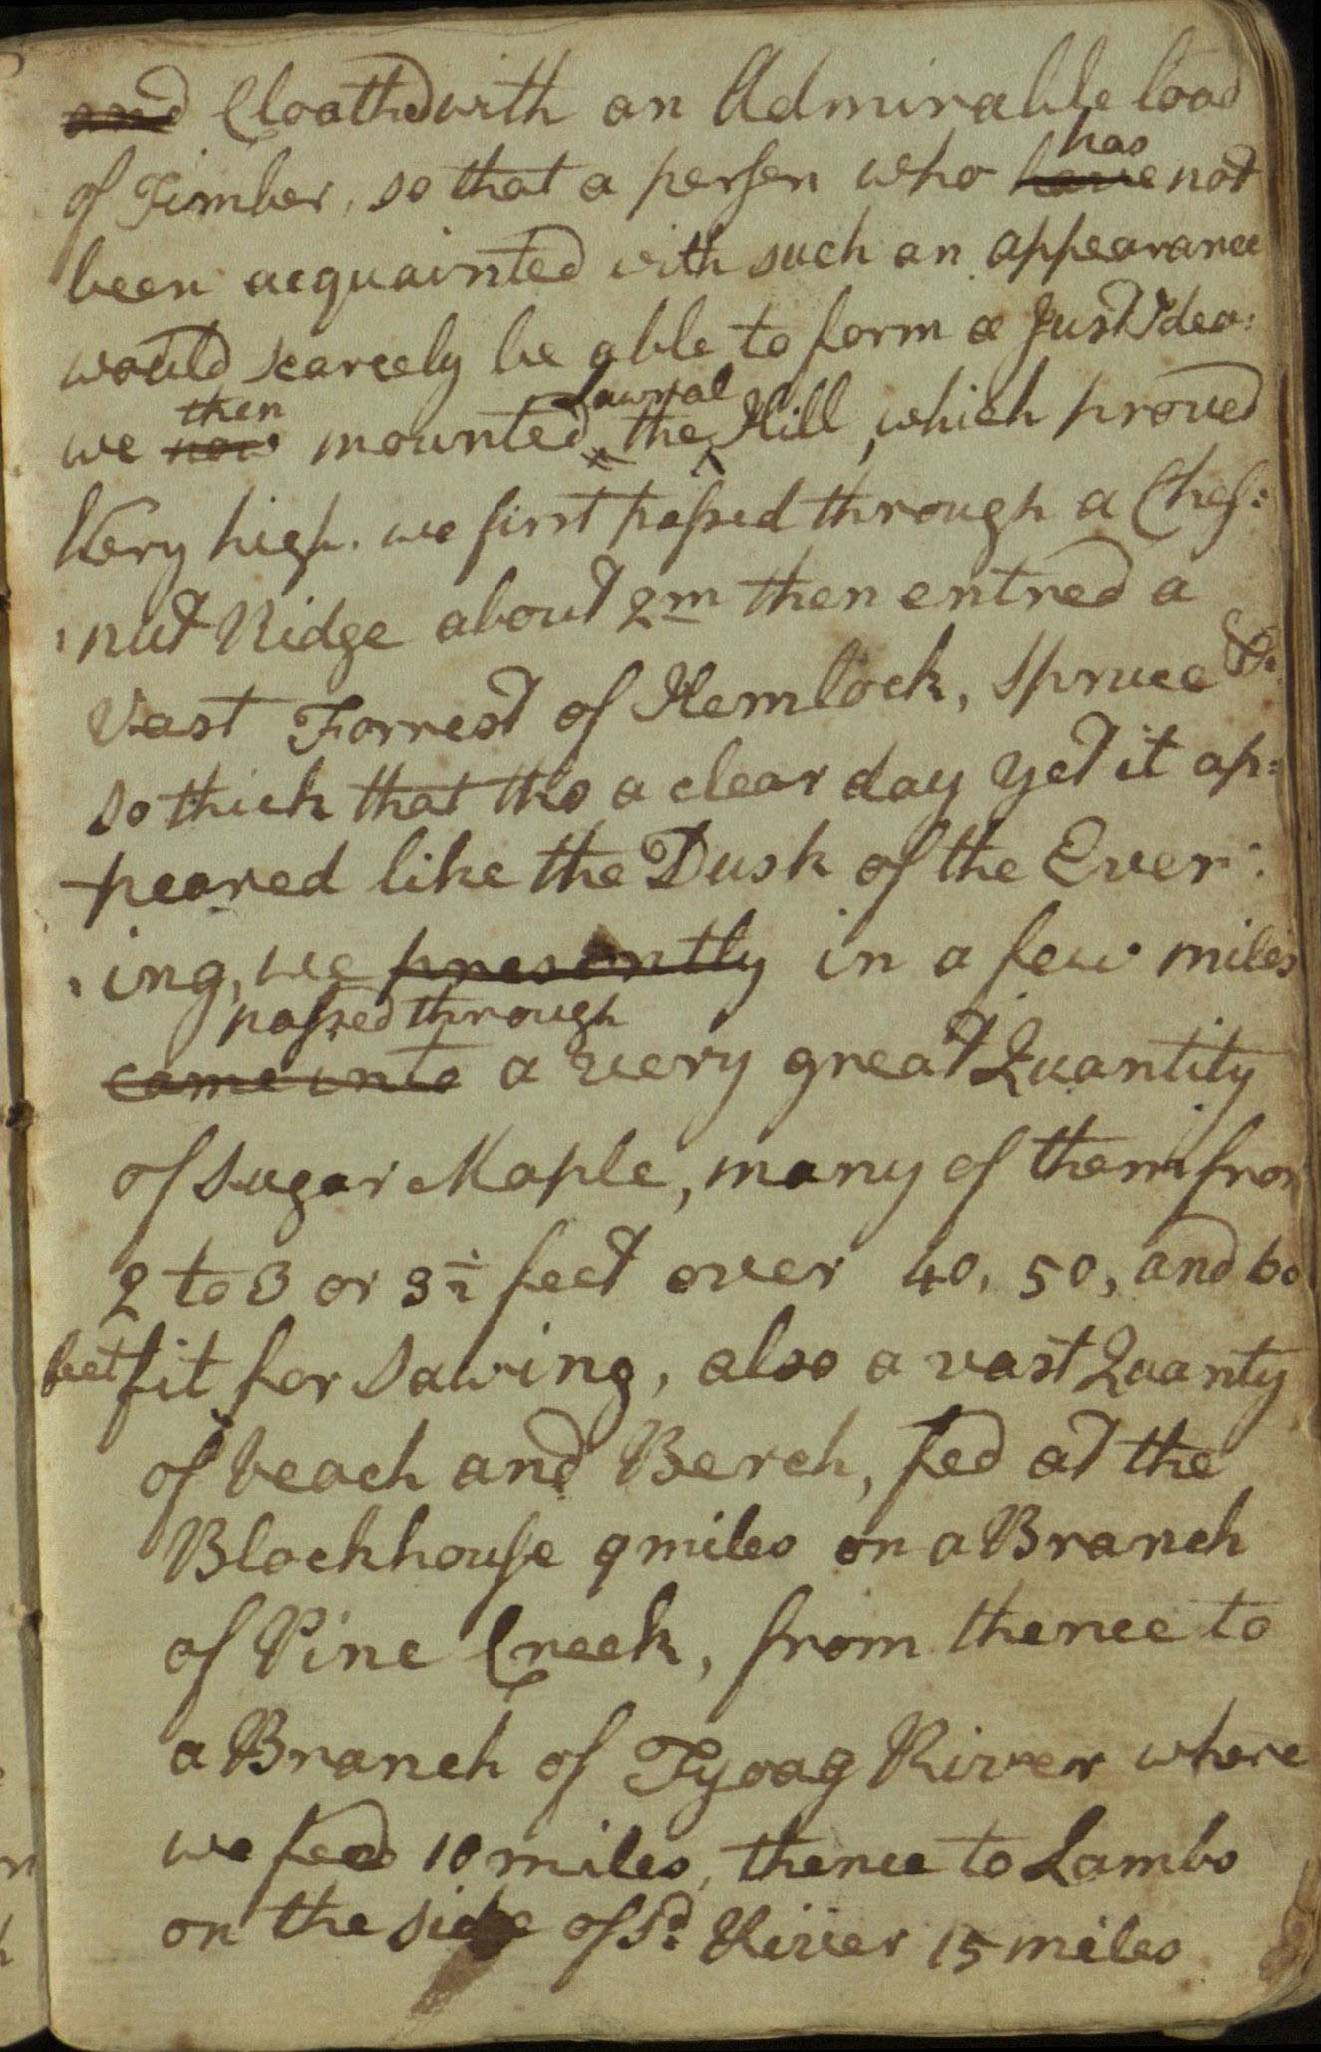 and Cloathed with an Admirable load
of Timber, so that a person who have has not
been acquainted with such an appearance
would scarcely be able to form a Just Idea:
we now then mounted the Lawral Hill, which proved
Very high. we first passed through a Ches:
:nut Ridge about 2m then entred a
Vast Forrest of Hemlock, Spruce &c
so thick that tho a clear day yet it ap:
-peared like the Dusk of the Even:
:ing, we presently in a few miles
came into passed through a very great Quantity
of Sugar Maple, many of them from
2 to 3 or 3½ feet over 40, 50, and 60
feet fit for Sawing, also a vast Quanty
of beach and Berch, fed at the
Blockhouse 9 miles on a Branch
of Pine Creek, from thence to
a Branch of Tyoag River where
we feed 10 miles, thence to Lambs
on the side of Sd. River 15 miles